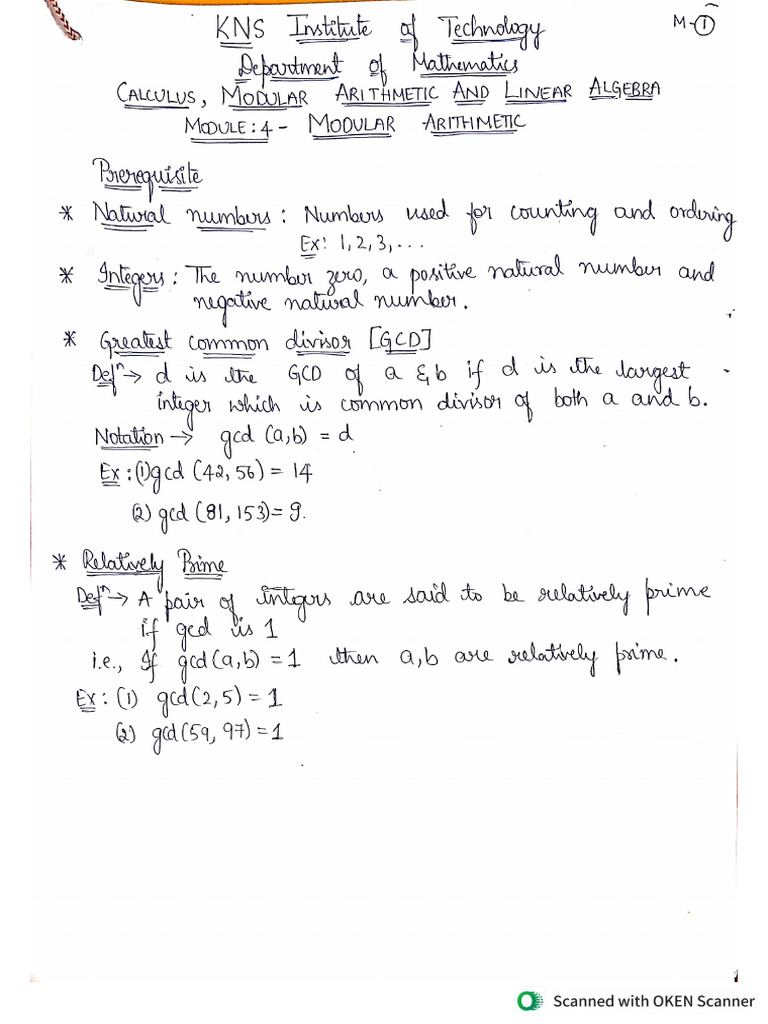 KNS Institute of Technology
M-①
Department of Mathematics
CALCULUS, MODULAR ARITHMETIC AND LINEAR ALGEBRA
MODULE: 4 - MODULAR ARITHMETIC
Prerequisite
* Natural numbers : Numbers used for counting and ordering
Ex: 1, 2, 3, ...
* Integers : The number zero, a positive natural number and
negative natural number.
* Greatest common divisor [GCD]
Defⁿ → d is the GCD of a & b if d is the largest
integer which is common divisor of both a and b.
Notation → gcd (a,b) = d
Ex : (1) gcd (42, 56) = 14
(2) gcd (81, 153) = 9.
* Relatively Prime
Defⁿ → A pair of integers are said to be relatively prime
if gcd is 1
i.e., If gcd (a,b) = 1 then a,b are relatively prime.
Ex : (1) gcd (2,5) = 1
(2) gcd (59, 97) = 1
Scanned with OKEN Scanner